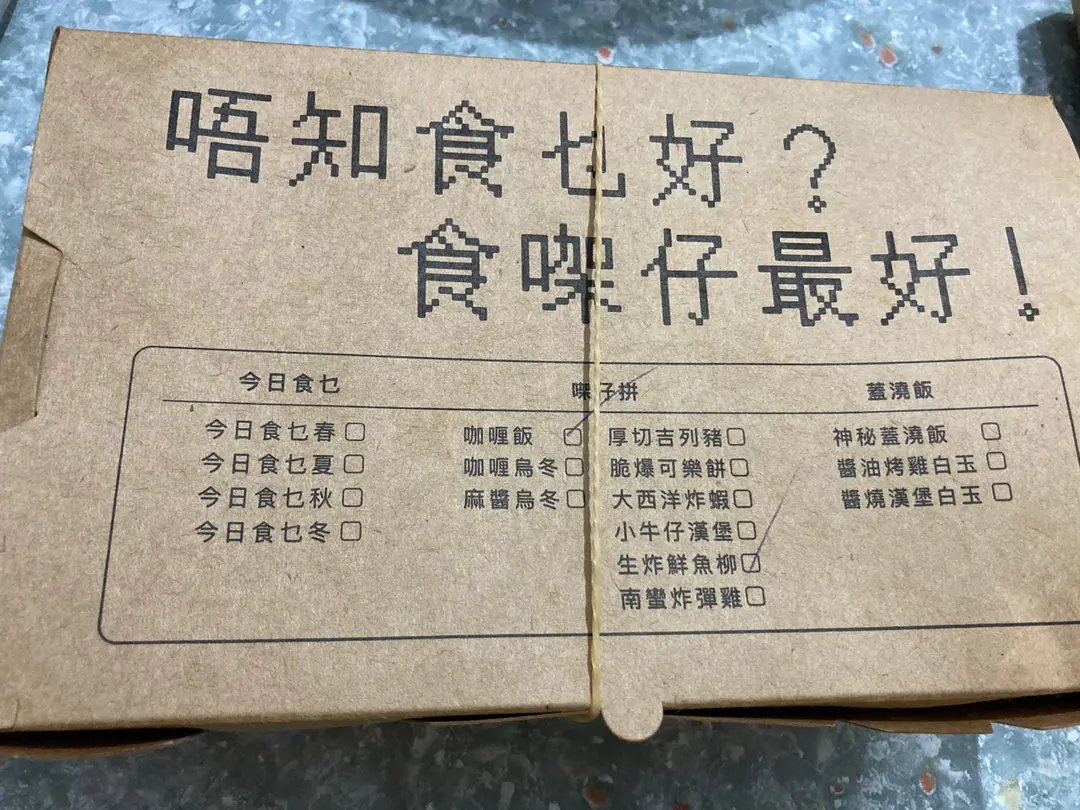 唔知食乜好？
食㗎仔最好！
今日食乜
今日食乜春
今日食乜夏
今日食乜秋
今日食乜冬
㗎仔拼
咖喱飯
咖喱烏冬
麻醬烏冬
厚切吉列豬
脆爆可樂餅
大西洋炸蝦
小牛仔漢堡
生炸鮮魚柳
南蠻炸彈雞
蓋澆飯
神秘蓋澆飯
醬油烤雞白玉
醬燒漢堡白玉